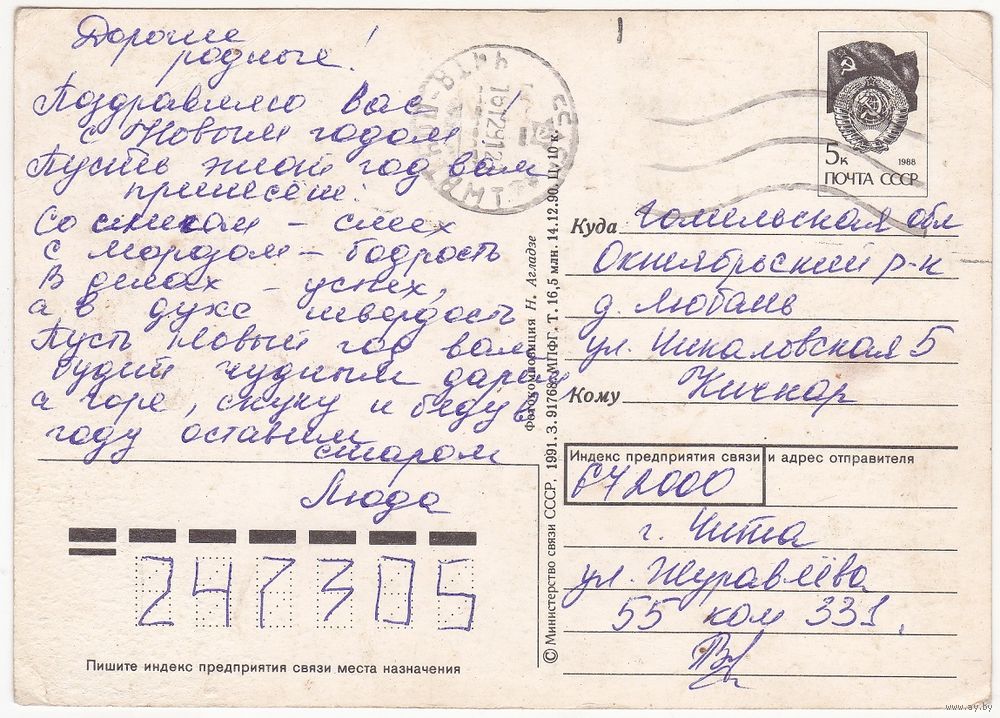 Дорогие
родные!
Поздравляю Вас
с Новым годом!
Пусть этот год вам
принесёт:
Со снегом – смех
с морозом – бодрость
В делах – успех,
а в духе твердость
Пусть Новый год вам
будет чудным даром
а горе, скуку и беду в
году оставим
старом
Люда
247305
Пишите индекс предприятия связи места назначения
Фотокомпозиция Н. Агладзе
© Министерство связи СССР, 1991. З. 91768. МПФГ. Т. 16,5 млн. 14.12.90. Ц. 10 к.
5к
1988
ПОЧТА СССР
Куда Гомельская обл
Октябрьский р-н
д. Любань
ул. Чкаловская 5
Кому Кичкар
Индекс предприятия связи и адрес отправителя
672000
г. Чита
ул. Журавлёва
55 ком 331.
www.ay.by